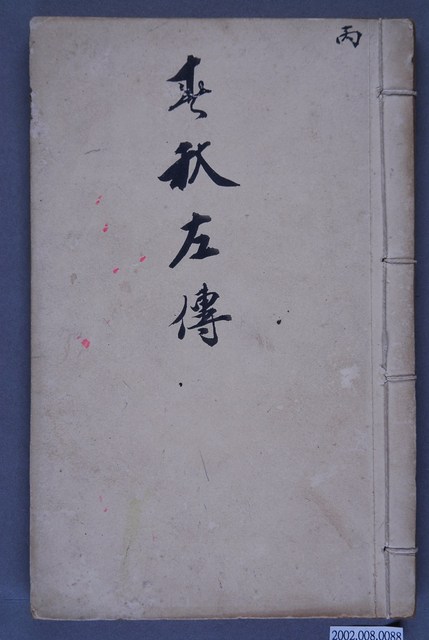 丙
春秋左傳
2002.008.0088